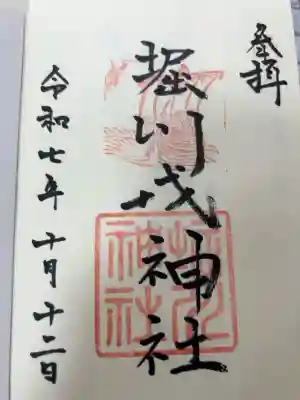 奉拝
堀川戎神社
令和七年十月十二日